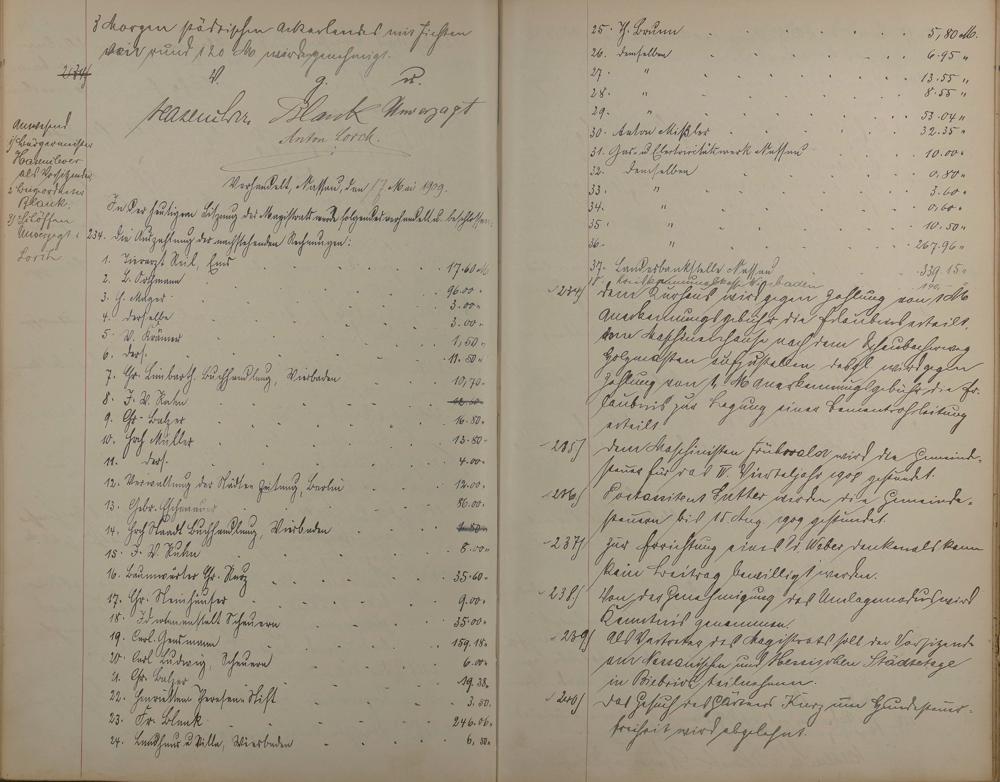 3 Morgen städtischen Ackerlandes mit Fichten
von rund 120 M wird genehmigt.
234)
V. g. u.
Hasenclever Blank Unverzagt
Anton Lorch.
Anwesend
1) Bürgermeister
Hasenclever
als Vorsitzender
2) Beigeordneter
Blank.
3) Schöffen
Unverzagt u.
Lorch
Verhandelt, Nassau, den 17 Mai 1909.
In der heutigen Sitzung des Magistrats wurde folgendes verhandelt u. beschlossen:
234. Die Auszahlung der nachstehenden Rechnungen:
1. Tierarzt Ems 17.60 M
2. L. 96.00 "
3. H. Mager 3.00 "
4. derselbe 3.00 "
5. W. Krämer 1,50 "
6. ders. 11.50 "
7. Chr. Limbarth Buchhandlung, Wiesbaden 10,70 "
8. J. W. Kuhn
9. Chr. Balzer 16.80 "
10. Hch. Müller 13.80 "
11. ders. 4.00 "
12. Verwaltung der Städte Zeitung, Berlin 12.00 "
13. Gebr. 86.00 "
14. Hch. Staadt Buchhandlung, Wiesbaden
15. J. W. Kuhn 8.00 "
16. Baumwärter Chr. Kurz 35.60 "
17. Chr. Steinhäuser 9.00 "
18. Idiotenanstalt Scheuern 35.00 "
19. Carl 159.18 "
20. Carl Ludwig, Scheuern 6.00 "
21. Chr. Balzer 19.38 "
22. Henrietten Theresen Stift 3.50 "
23. Fr. Blank 246.06 "
24. Landhaus u. Villa, Wiesbaden 6,50 "
25. H. Brunn 5,80 M.
26. demselben 6.95 "
27. " 13.55 "
28. " 8.55 "
29. " 53.04 "
30. Anton Mißler 32.35 "
31. Gas- u. Electricitätswerk Nassau 10.00 "
32. demselben 0,80 "
33. " 3.60 "
34. " 0,60 "
35. " 10.50 "
36. " 267.96 "
37. Landesbankstelle Nassau 339.15 "
Wiesbaden
234) Dem Kurhaus wird gegen Zahlung von 1 M
Anerkennungsgebühr die Erlaubnis erteilt,
vom Maschinenhause nach dem
Holzmasten aufzustellen, wird gegen
Zahlung von 1 M Anerkennungsgebühr die Er-
laubnis zur Legung einer Cementrohrleitung
erteilt
235) Dem Maschinisten wird die Gemeinde-
steuer für das IV Vierteljahr 1908 gestundet.
236) Sutter werden die Gemeinde-
steuern bis 15 Aug. 1909 gestundet.
237) Zur Errichtung eines Weber denkmals kann
kein Beitrag bewilligt werden.
238) Von der Genehmigung des Umlagemodus wird
Kenntnis genommen.
239) Als Vertreter des Magistrats soll der Vorsitzende
am Nassauischen und Hessischen Städtetage
in Biebrich teilnehmen.
240) Das Gesuch des Kurz um Hundesteuer-
freiheit wird abgelehnt.